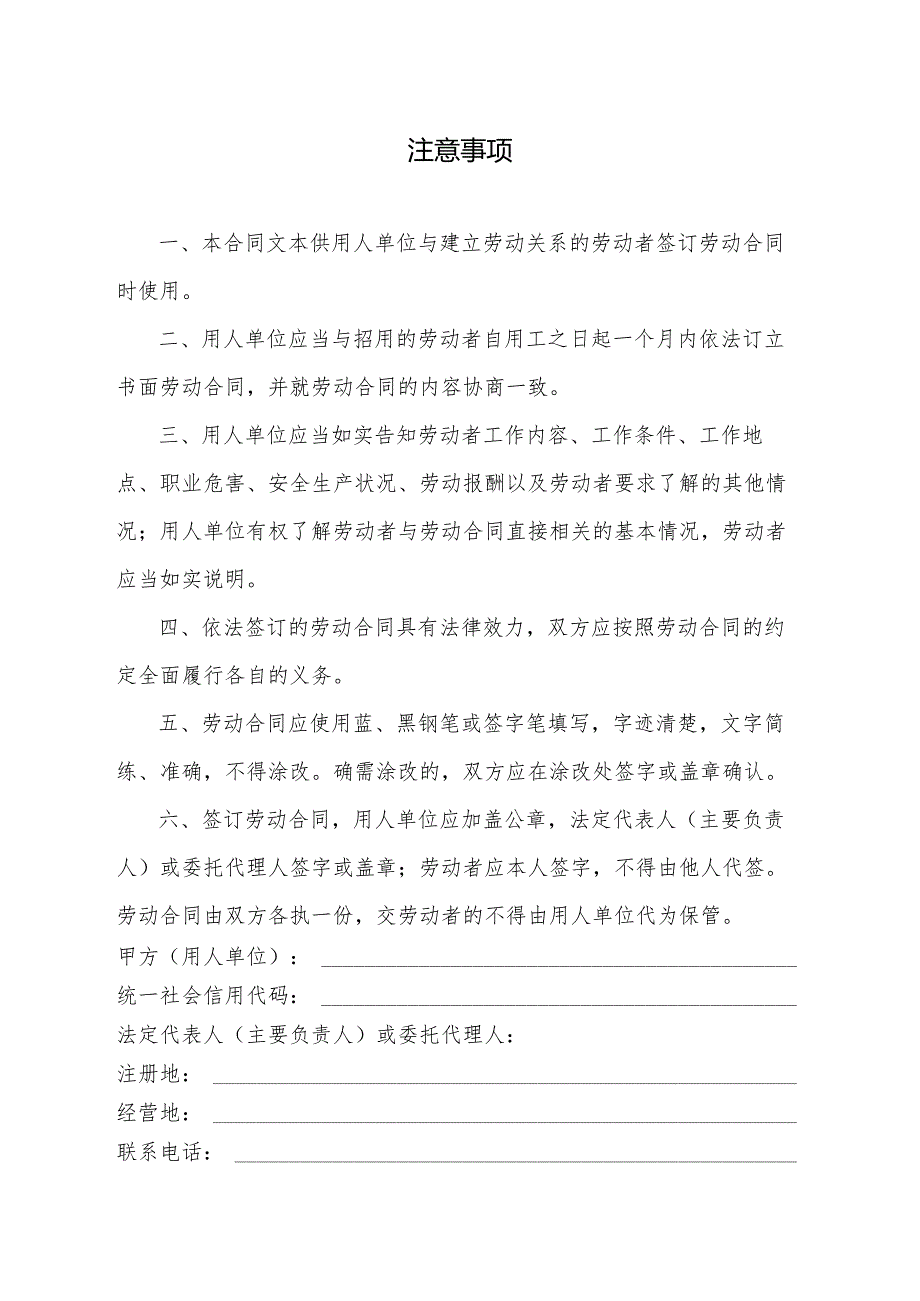 注意事项
一、本合同文本供用人单位与建立劳动关系的劳动者签订劳动合同
时使用。
二、用人单位应当与招用的劳动者自用工之日起一个月内依法订立
书面劳动合同，并就劳动合同的内容协商一致。
三、用人单位应当如实告知劳动者工作内容、工作条件、工作地
点、职业危害、安全生产状况、劳动报酬以及劳动者要求了解的其他情
况；用人单位有权了解劳动者与劳动合同直接相关的基本情况，劳动者
应当如实说明。
四、依法签订的劳动合同具有法律效力，双方应按照劳动合同的约
定全面履行各自的义务。
五、劳动合同应使用蓝、黑钢笔或签字笔填写，字迹清楚，文字简
练、准确，不得涂改。确需涂改的，双方应在涂改处签字或盖章确认。
六、签订劳动合同，用人单位应加盖公章，法定代表人（主要负责
人）或委托代理人签字或盖章；劳动者应本人签字，不得由他人代签。
劳动合同由双方各执一份，交劳动者的不得由用人单位代为保管。
甲方（用人单位）：
统一社会信用代码：
法定代表人（主要负责人）或委托代理人：
注册地：
经营地：
联系电话：